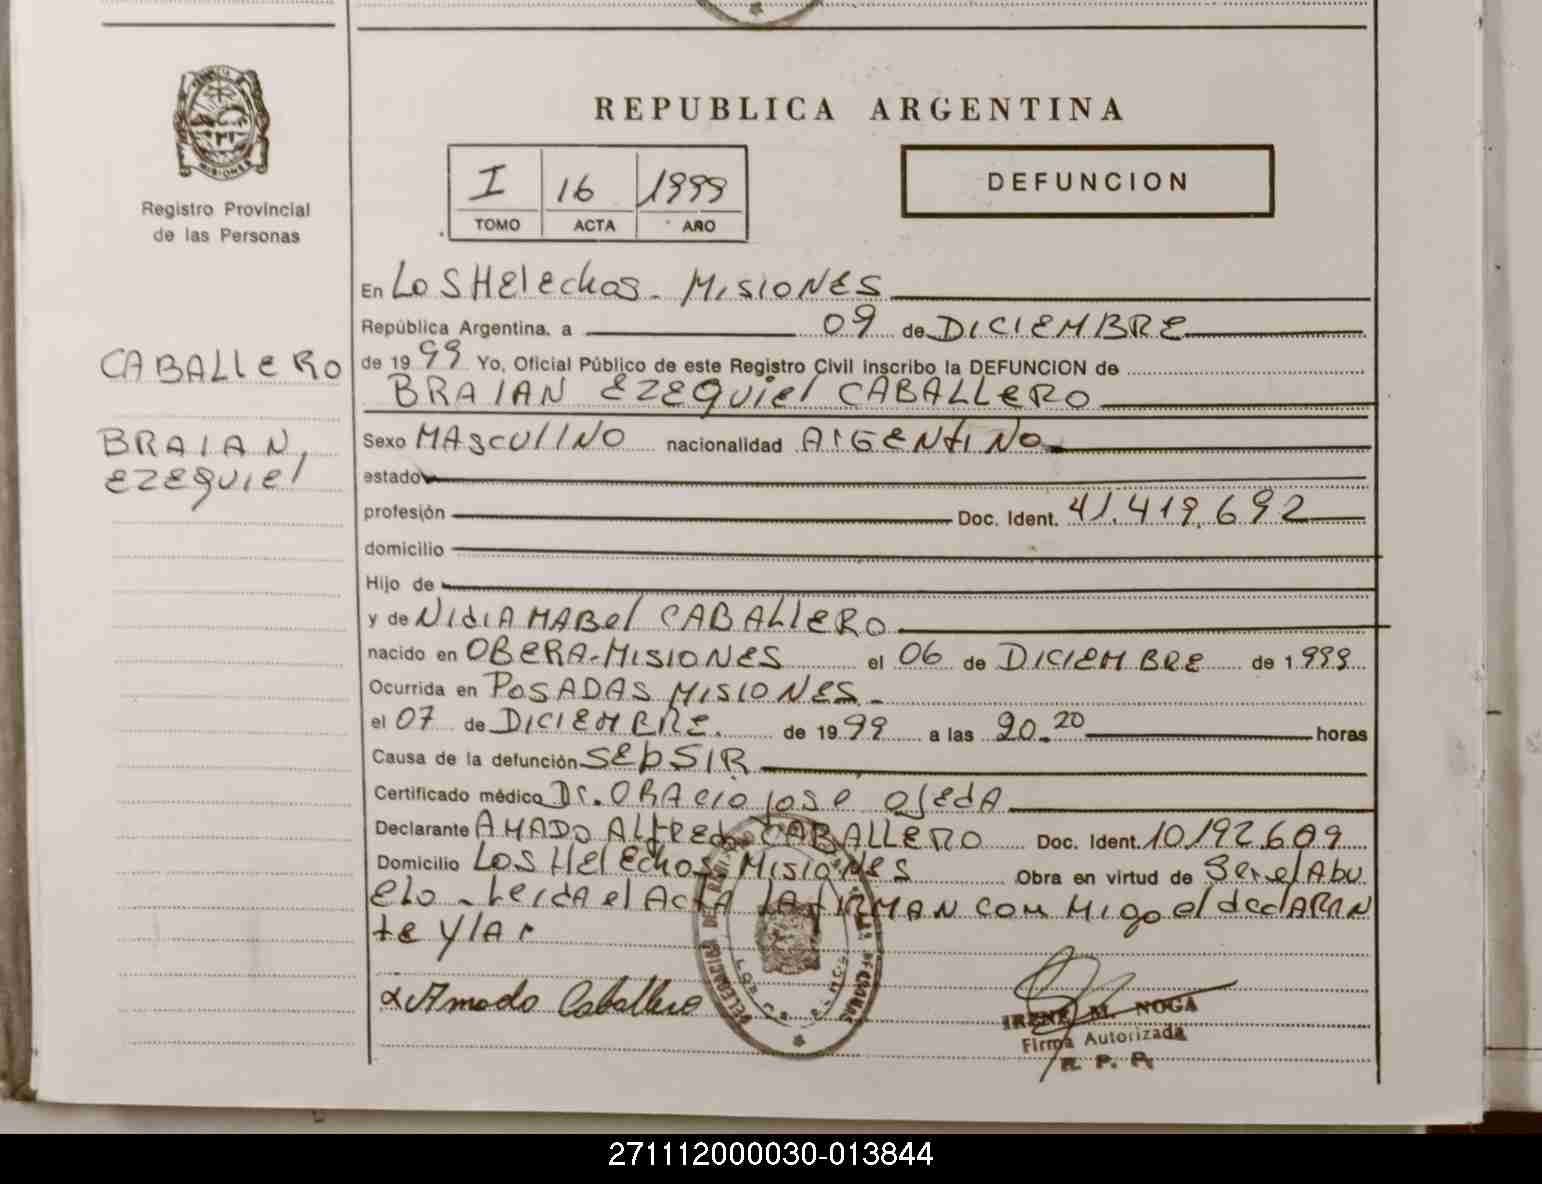 MISIONES
Registro Provincial
de las Personas
REPUBLICA ARGENTINA
I 16 1999
TOMO ACTA AÑO
DEFUNCION
CABALLERO
BRAIAN,
EZEQUIEL
En Los Helechos - MISIONES
República Argentina, a 09 de DICIEMBRE
de 1999 Yo, Oficial Público de este Registro Civil inscribo la DEFUNCION de
BRAIAN EZEQUIEL CABALLERO
Sexo MASCULINO nacionalidad ARGENTINO
estado
profesión Doc. Ident. 41.419.692
domicilio
Hijo de
y de NIdIA MABEl CABALLERO
nacido en OBERA-MISIONES el 06 de DICIEMBRE de 1.999
Ocurrida en POSADAS MISIONES -
el 07 de DICIEMBRE. de 1999 a las 20.20 horas
Causa de la defunción SEPSIR
Certificado médico Dr. ORACIO JOSE OJEDA
Declarante AMADO ALFREDO CABALLERO Doc. Ident. 10192.609
Domicilio LOS HELECHOS MISIONES Obra en virtud de Ser el Abu
elo - Leida el ACTA LA FIRMAN con Migo el declARAN
te y lA
Amado Caballero
DELEGACION DEL REGISTRO
IRENE M. NOGA
Firma Autorizada
R. P. P.
271112000030-013844